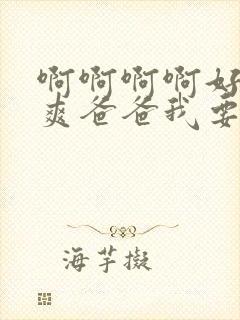 啊啊啊啊好
爽爸爸我要
海芋拟